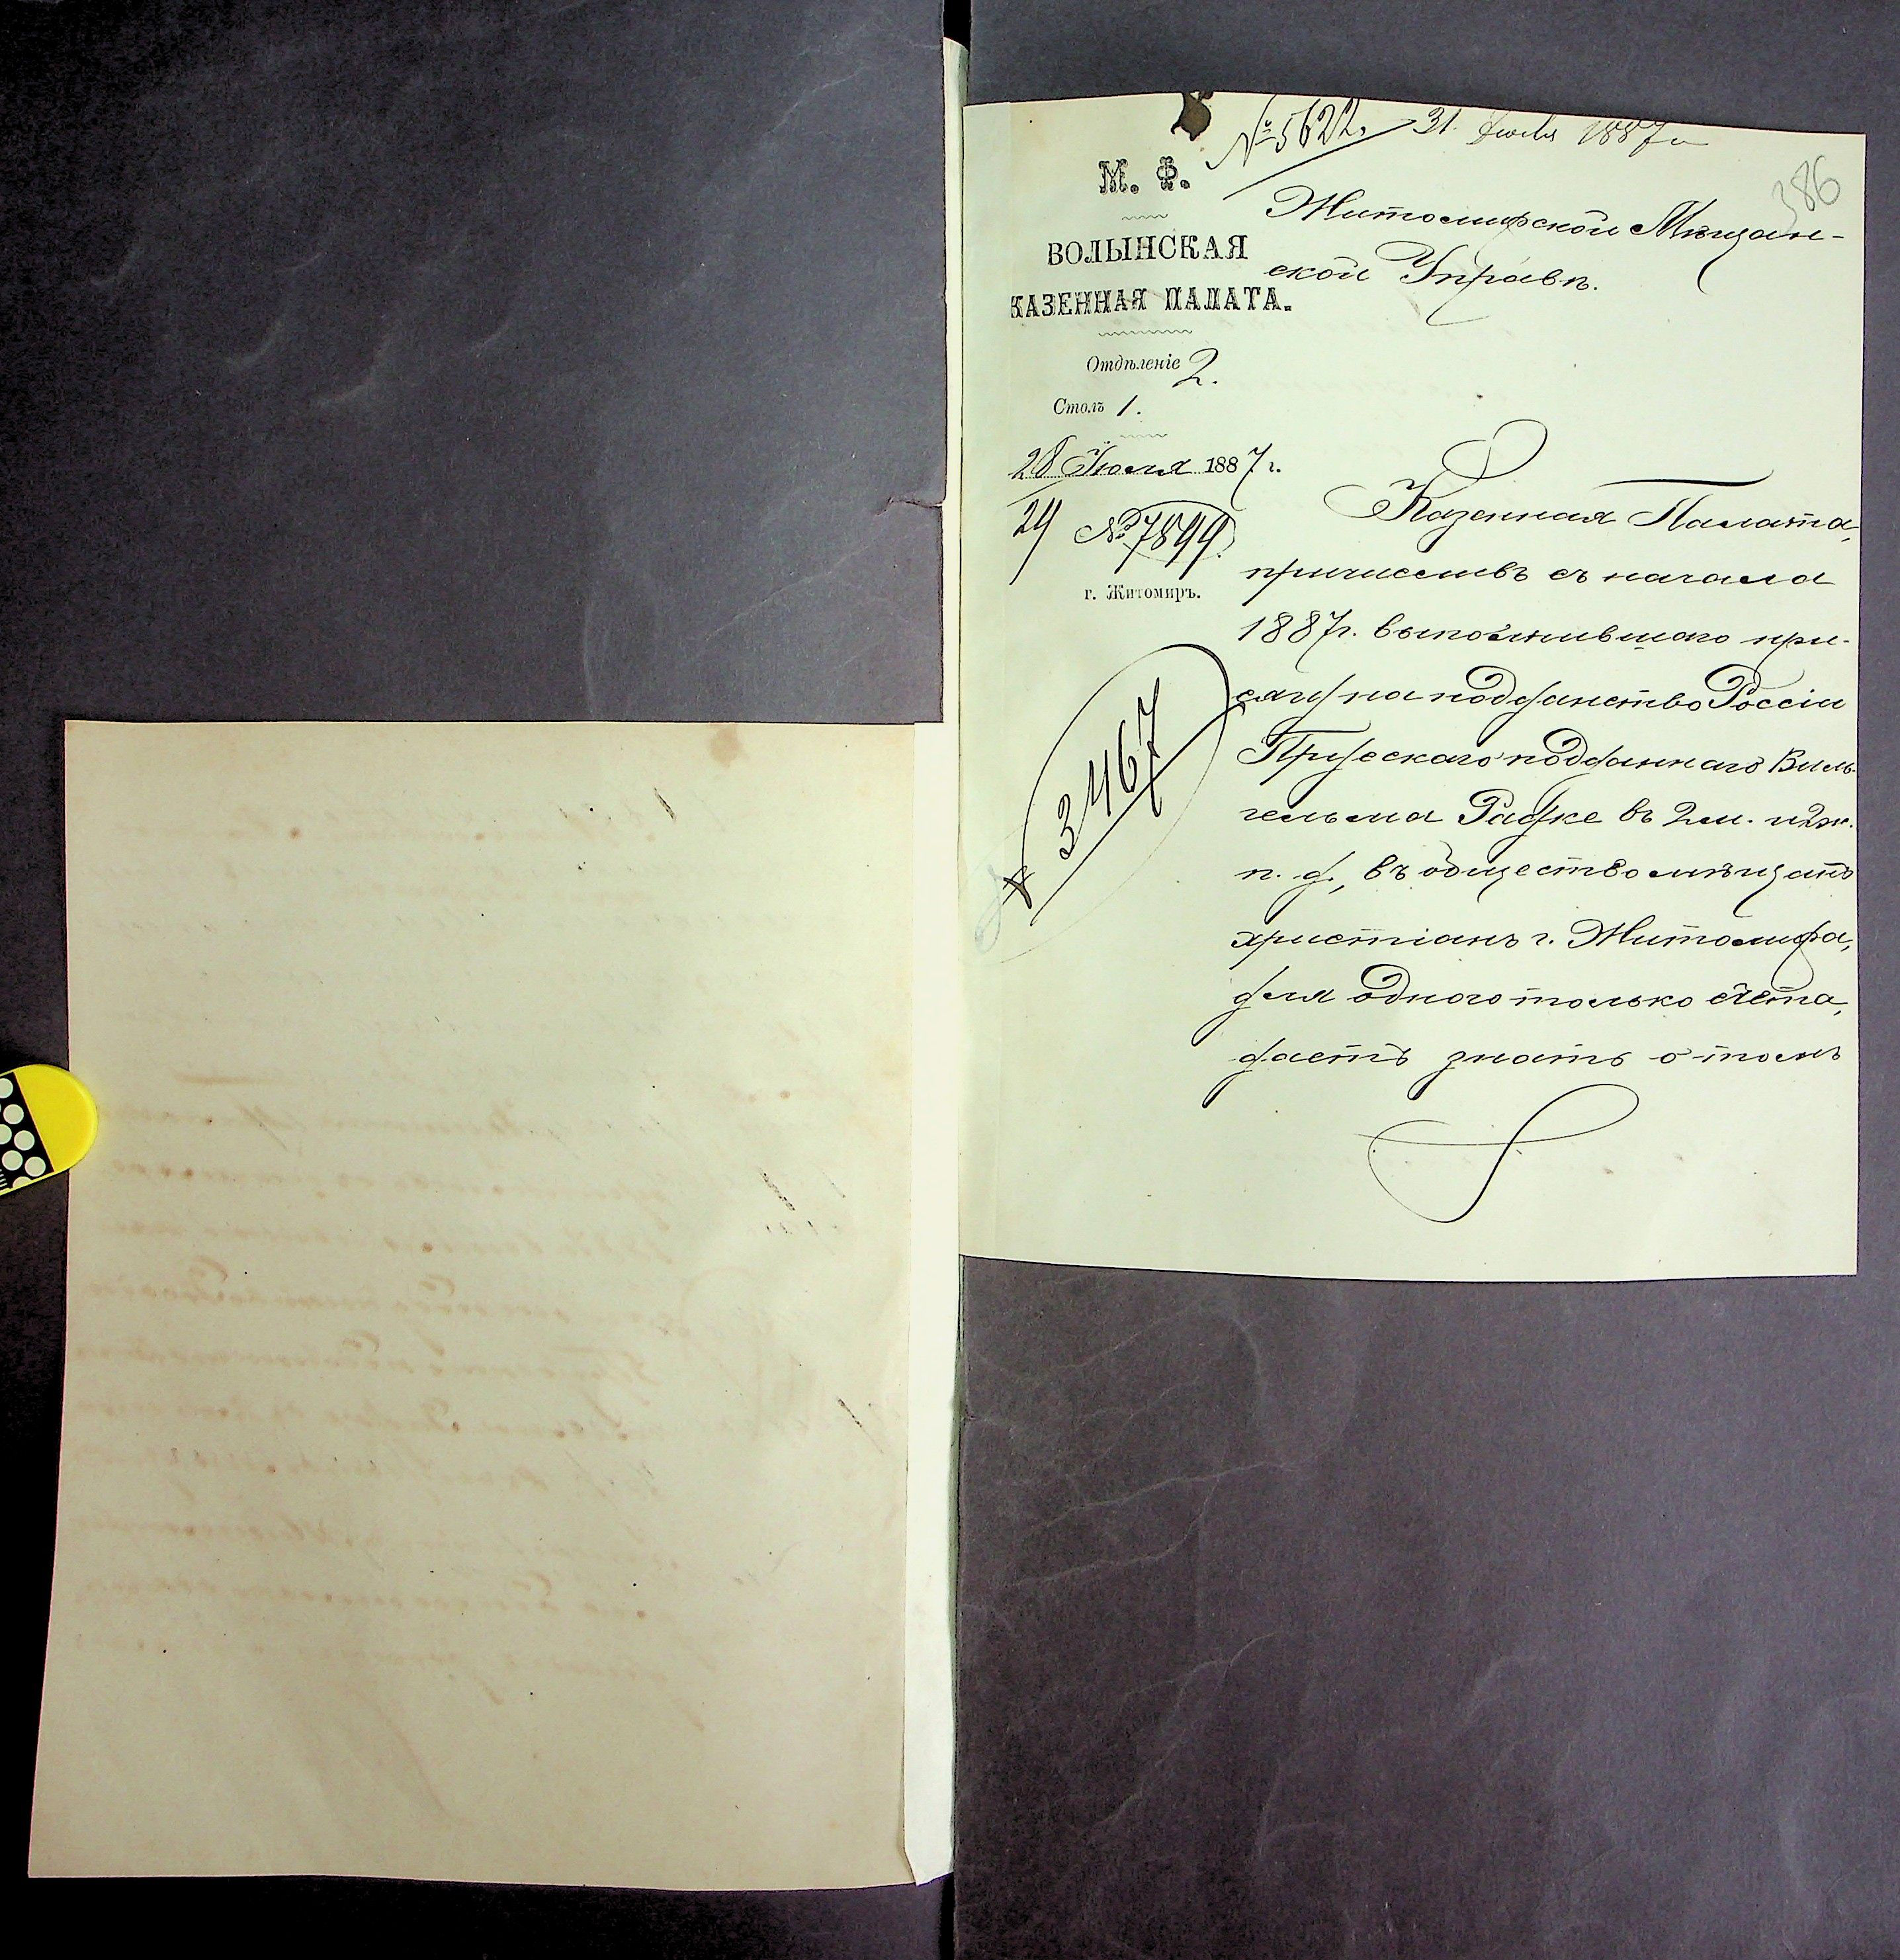 № 5622. 31 Июля 1887 г
386
М. Ф.
ВОЛЫНСКАЯ
КАЗЕННАЯ ПАЛАТА.
Отдѣленіе 2.
Столъ 1.
28 Июля 1887 г.
29 № 7899.
г. Житомиръ.
3467
Житомирской Мѣщан-
ской Управѣ.
Казенная Палата,
причисливъ съ начала
1887 г. выполнившаго при-
сягу на подданство Россіи
Прусскаго подданнаго Виль-
гельма Радке въ 2 м. и 2 ж.
п. д., въ общество мѣщанъ
христіанъ г. Житомира,
для одного только счета,
даетъ знать о томъ